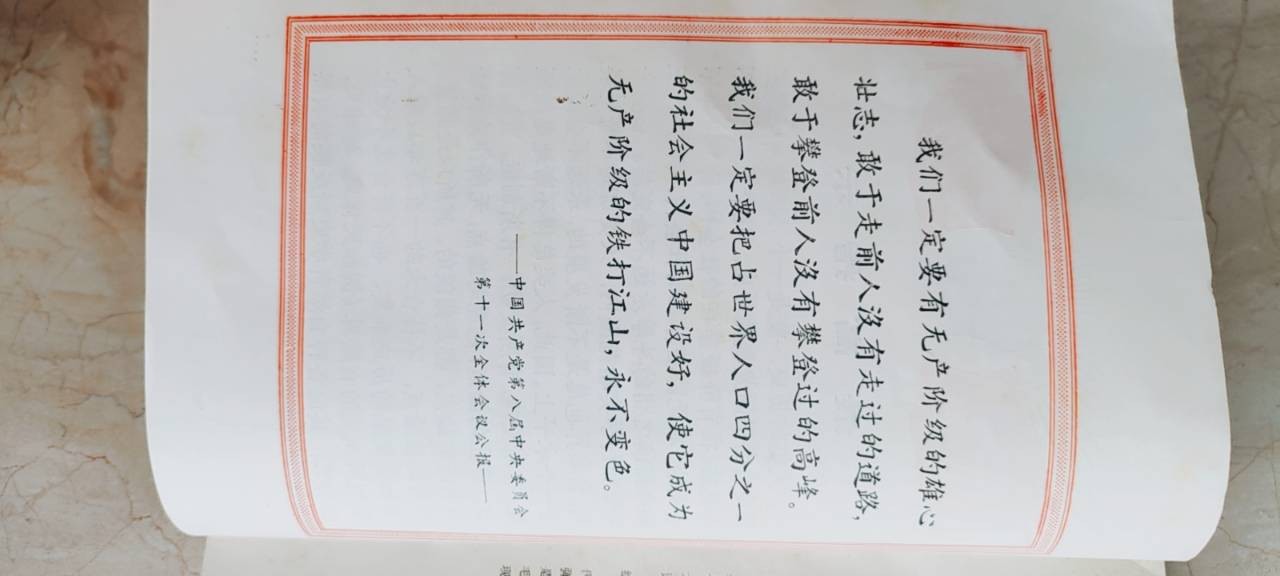 我们一定要有无产阶级的雄心
壮志，敢于走前人没有走过的道路，
敢于攀登前人没有攀登过的高峰。
我们一定要把占世界人口四分之一
的社会主义中国建设好，使它成为
无产阶级的铁打江山，永不变色。
——中国共产党第八届中央委员会
第十一次全体会议公报——